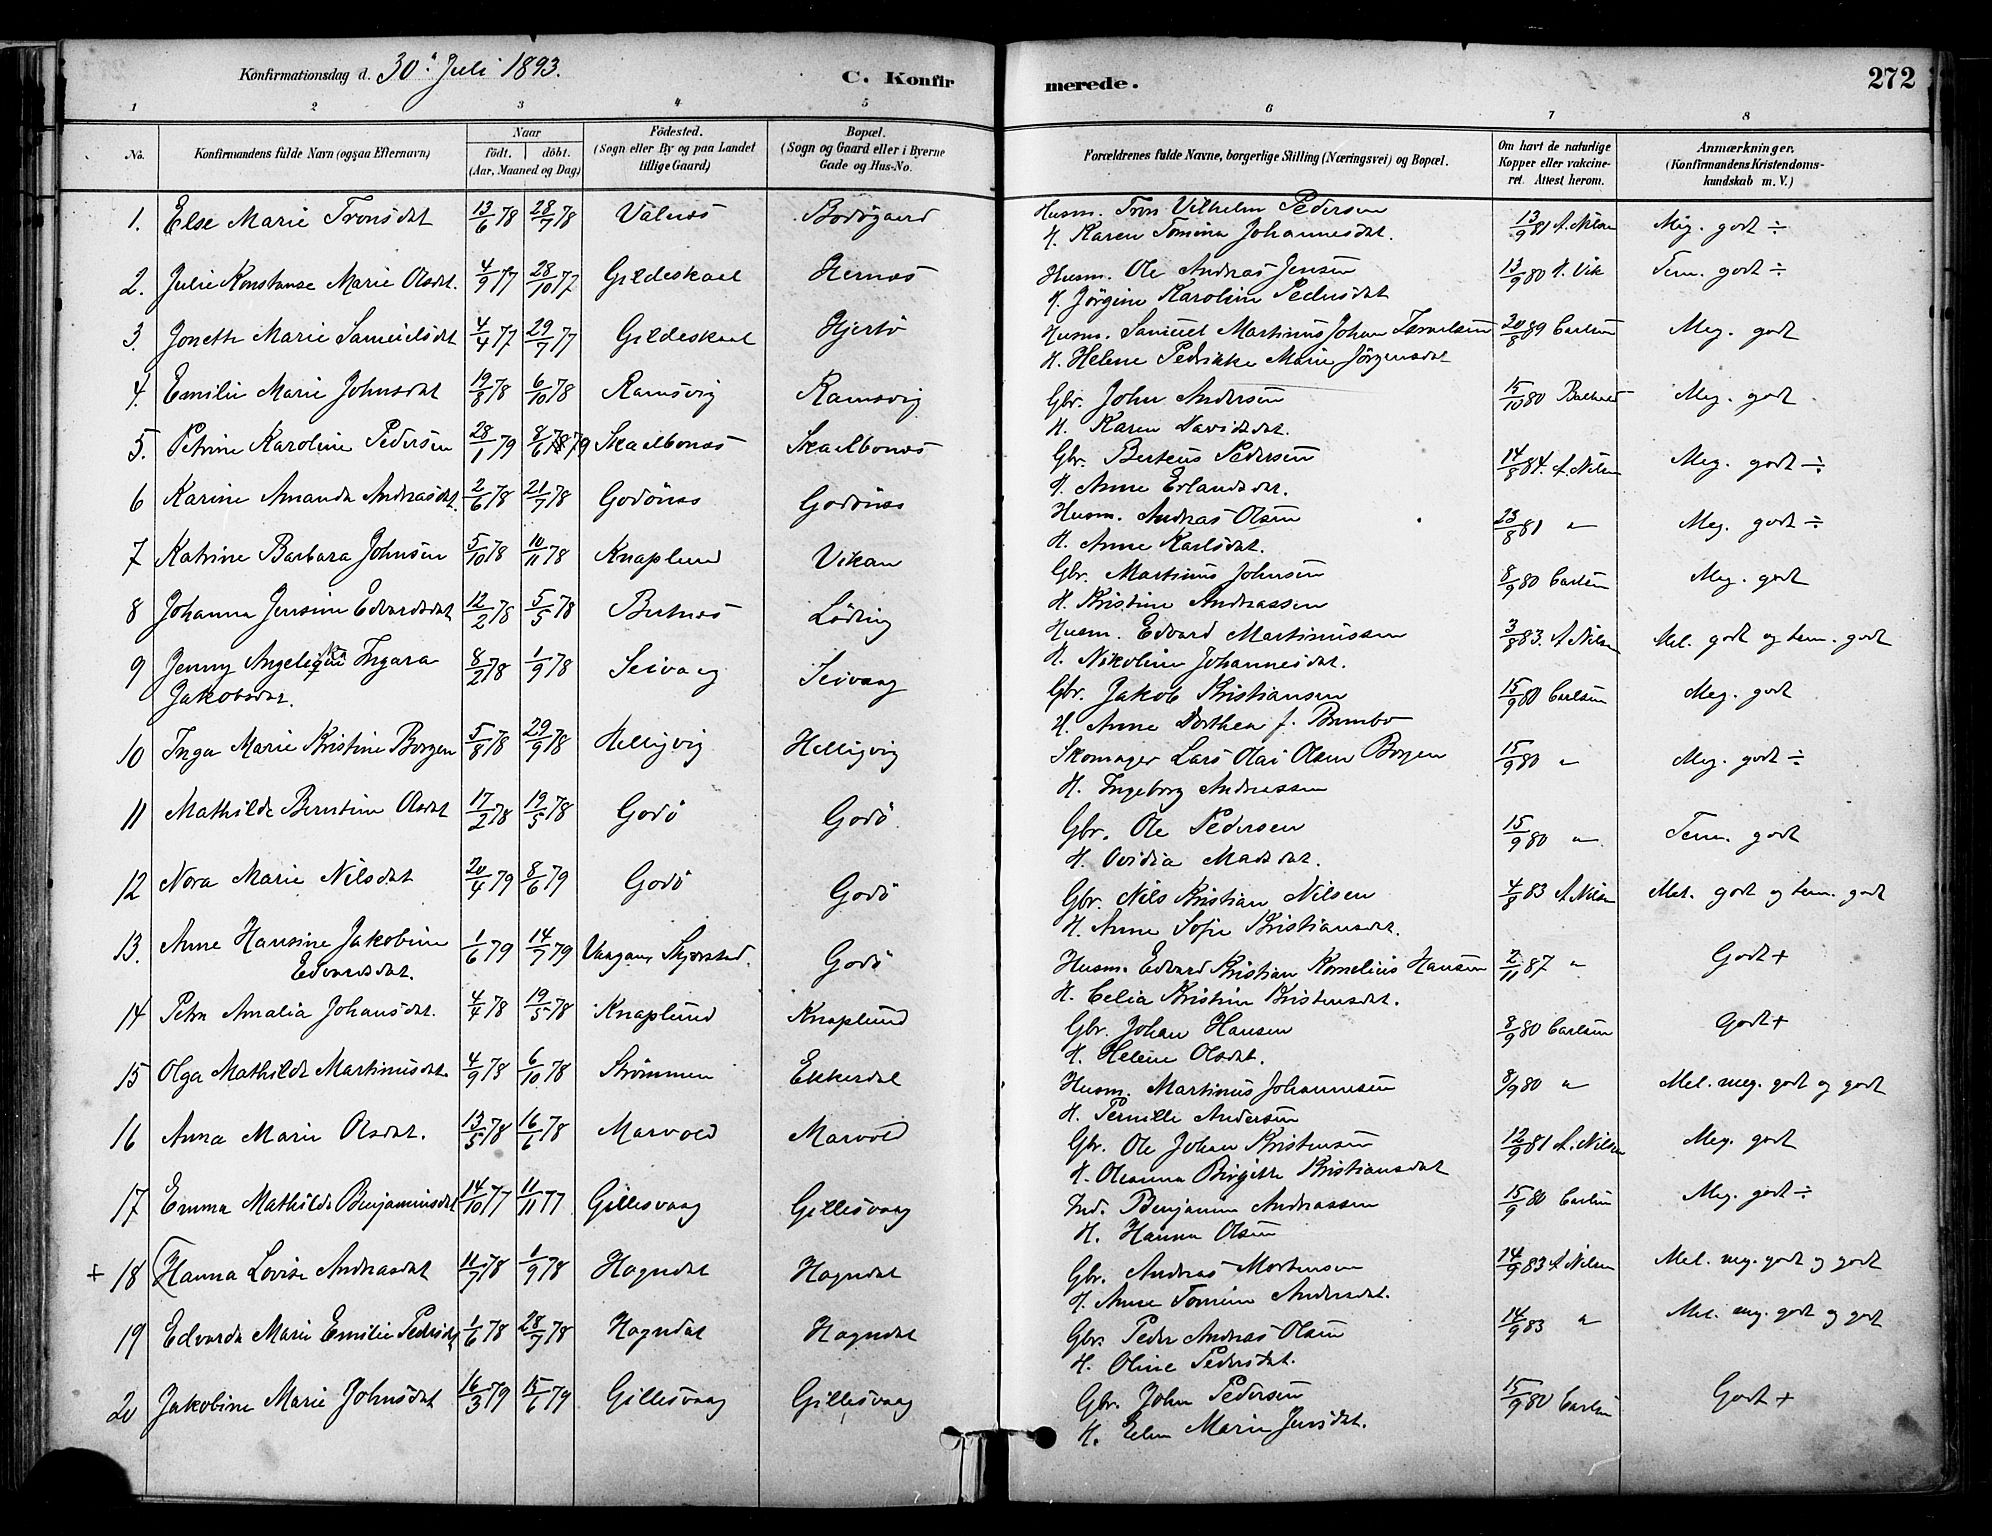 Konfirmationsdag d. 30' Juli 1893.
C. Konfirmerede.
272
1 2 3 4 5 6 7 8
No.
Konfirmandens fulde Navn (ogsaa Efternavn)
Naar
födt. döbt.
(Aar, Maaned og Dag)
Födested.
(Sogn eller By og paa Landet
tillige Gaard)
Bopæl.
(Sogn og Gaard eller i Byerne
Gade og Hus-No.
Forældrenes fulde Navne, borgerlige Stilling (Næringsvei) og Bopæl.
Om havt de naturlige
Kopper eller vakcine-
ret. Attest herom.
Anmærkninger.
(Konfirmandens Kristendoms-
kundskab m. V.)
1. Else Marie Tronsdat 13/6 78 28/7 78 Valnæs Bodögaard Husm. Tron Vilhelm Pedersen 13/9 81 A. Nilsen Meg. godt ÷
H. Karen Tomina Johannesdat.
2. Julie Konstanse Marie Olsdat. 4/9 77 28/10 77 Gildeskaal Hernæs Husm. Ole Andreas Jensen 13/9 80 H. Vik Tem. godt ÷
H. Jörgine Karoline Pedersdat
3. Jonette Marie Samuelsdat 4/4 77 29/7 77 Gildeskaal Hjertö Husm. Samuel Martinus Johan Ismaelsen 20/8 89 Carlsen Meg. godt
H. Helene Pedrikke Marie Jörgensdat
4. Emilie Marie Johnsdat 19/8 78 6/10 78 Ramsvig Ramsvig Gbr. John Andersen 15/10 80 Meg. godt
H. Karen Davidsdat.
5. Petrine Karoline Pedersen 28/1 79 8/6 79 Skaelbonæs Skaelbonæs Gbr. Berteus Pedersen 14/8 84. A. Nilsen Meg. godt ÷
H. Anne Erlandsdat.
6 Karine Amanda Andreasdat. 2/6 78 21/7 78 Godönæs Godönæs Husm. Andreas Olsen 23/8 81 " Meg. godt ÷
H. Anne Karlsdat.
7 Katrine Barbara Johnsen 5/10 78 10/11 78 Knaplund Vikan Gbr. Martinus Johnsen 8/9 80 Carlsen Meg. godt
H. Kristine Andreassen
8 Johanna Jensine Edvardsdat 12/2 78 5/5 78 Bertnæs Löding Husm. Edvard Martinussen 3/8 83. A. Nilsen Mel. godt og tem. godt
H. Nikoline Johannesdat.
9 Jenny Angelique Ingara 8/2 78 1/9 78 Seivaag Seivaag Gbr. Jakob Kristiansen 15/9 80 Carlsen Meg. godt
Jakobsdat.
H. Anne Dorthea f. Brembo
10 Inga Marie Kristine Borgen 5/8 78 29/9 78 Helligvig Helligvig Skomager Lars Olai Olsen Borgen 15/9 80 " Meg. godt ÷
H. Ingeborg Andreassen
11 Mathilde Berntine Olsdat 17/2 78 19/5 78 Godö Godö. Gbr. Ole Pedersen 15/9 80 " Tem. godt
H. Ovidia Madsdat.
12 Nora Marie Nilsdat 20/4 79 8/6 79 Godö Godö Gbr. Nils Kristian Nilsen 4/8 83 A. Nilsen Mel. godt og tem. godt
H. Anne Sofie Kristiansdat.
13. Anne Hansine Jakobine 1/6 79 14/7 79 Vaagan, Skjerstad. Godö Husm. Edvard Kristian Kornelius Hansen 2/11 87 " Godt +
Edvardsdat.
H. Celia Kristine Kristensdat.
14 Petra Amalia Johansdat. 4/4 78 19/5 78 Knaplund Knaplund Gbr. Johan Hansen 8/9 80 Carlsen Godt +
H. Helene Olsdat.
15 Olga Mathilde Martinusdat. 4/9 78 6/10 78 Strömmen Ekkerdal Husm. Martinus Johannesen 8/9 80 " Mel. meg. godt og godt
H. Pernille Andersen
16 Anna Marie Olsdat. 13/5 78 16/6 78 Marvold Marvold Gbr. Ole Johan Kristensen 12/9 81 A. Nilsen Meg. godt
H. Oleanna Birgitte Kristiansdat
17 Emma Mathilde Benjaminsdat 14/10 77 11/11 77 Gillesvaag Gillesvaag Ind. Benjamin Andreassen 15/9 80 Carlsen Meg. godt ÷
H. Hanna Olsen
+ 18 (Hanna Lovise Andreasdat 11/7 78 1/9 78 Hogndal Hogndal Gbr. Andreas Mortensen 14/9 83 A. Nilsen Mel. meg. godt og godt
H. Anne Tomine Andersdat.
19 Edvarda Marie Emilie Pedersdt 1/6 78 28/7 78 Hogndal Hogndal Gbr. Peder Andreas Olsen 14/9 83 " Mel. meg. godt og godt
H. Oline Pedersdat.
20 Jakobine Marie Johnsdat 16/3 79 15/6 79 Gillesvaag Gillesvaag Gbr. John Pedersen 15/9 80 Carlsen Godt +
H. Elen Marie Jensdat.